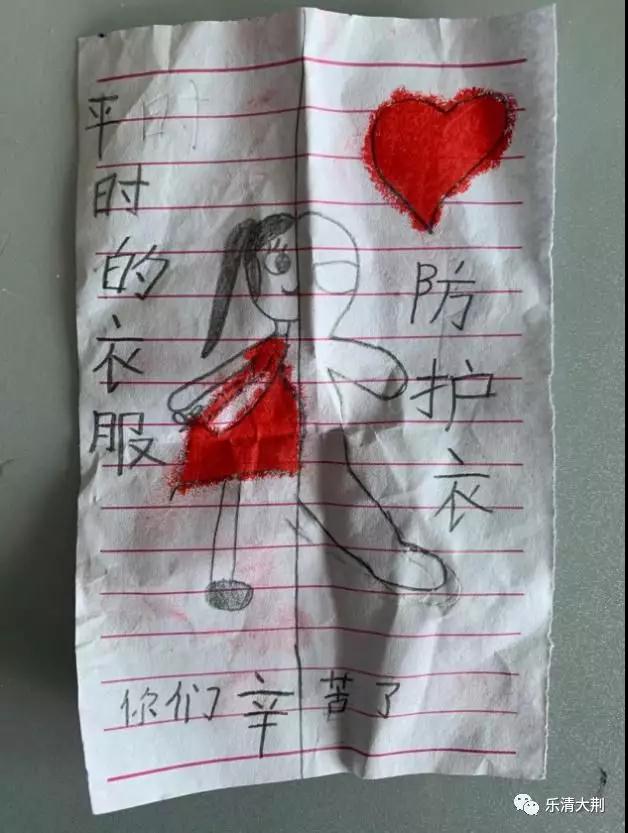 平时
时
的
衣
服
防
护
衣
你们辛苦了
乐清大荆